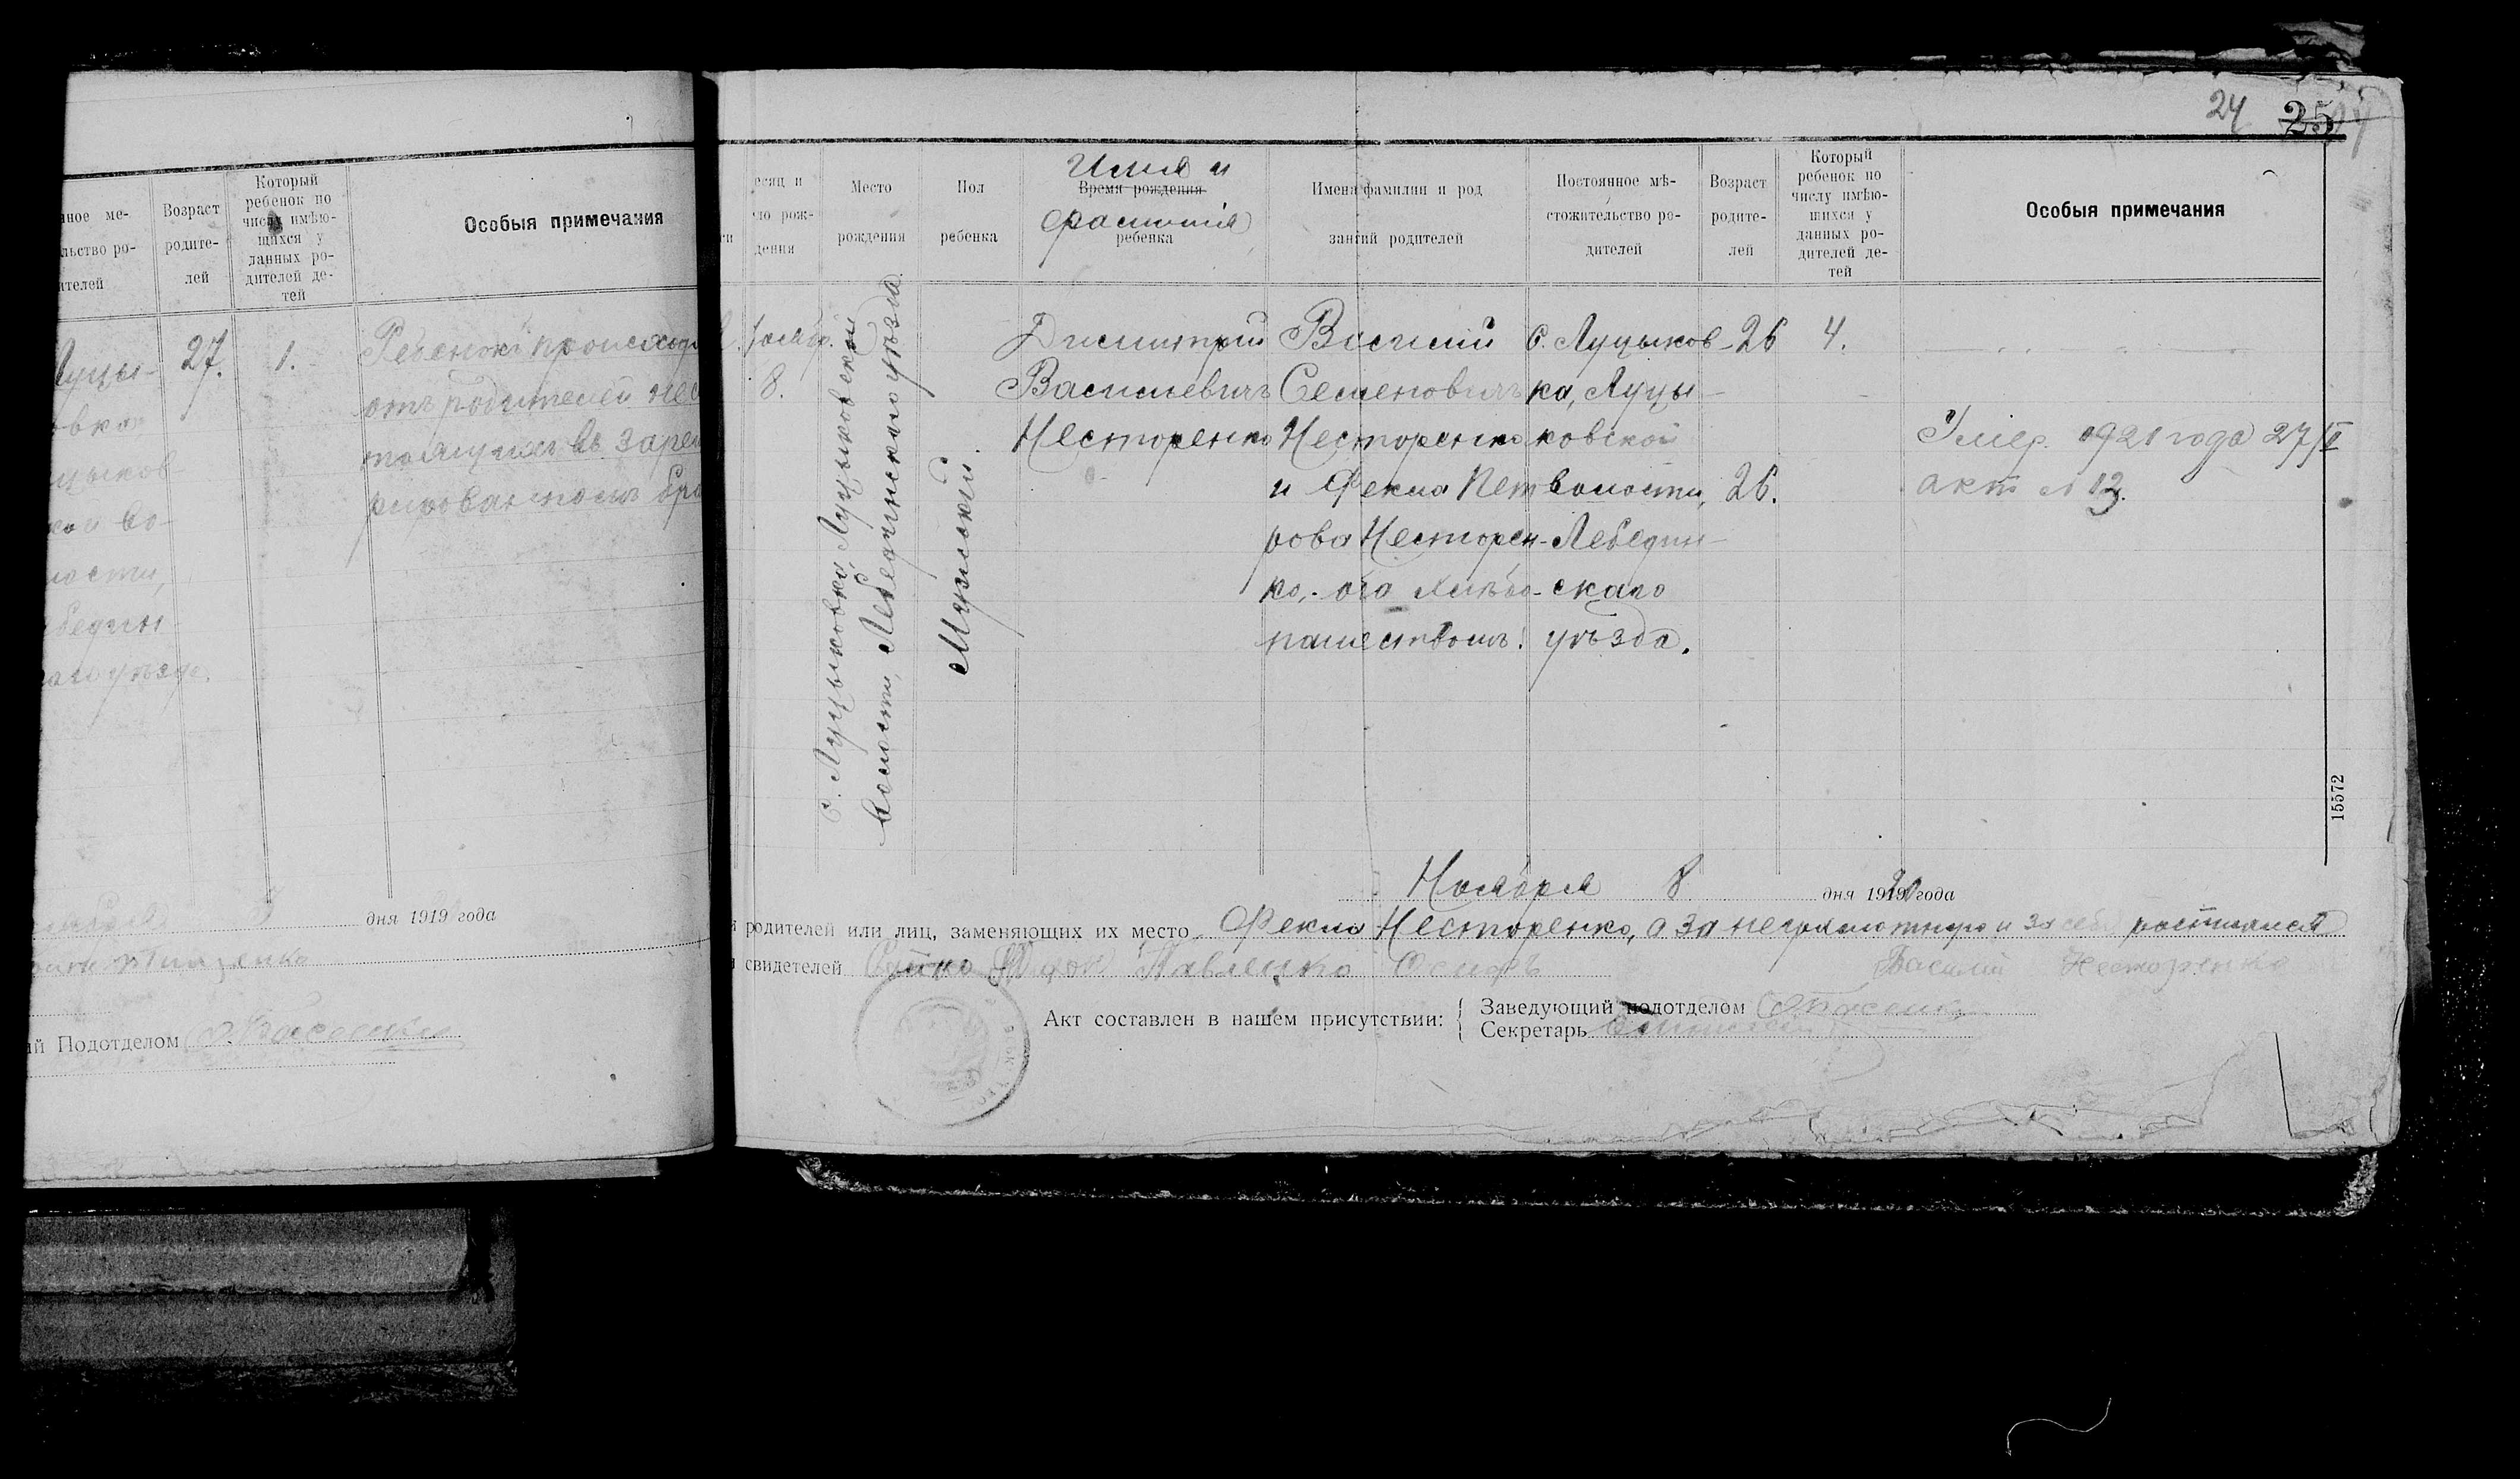 нное ме-
льство ро-
ителей
Возраст
родите-
лей
Который
ребенок по
числу имѣю-
щихся у
данных ро-
дителей де-
тей
Особыя примечания
Луцы-
овка
цыков-
кой во-
лости,
бедин
аго уѣзда.
27.
1.
Ребенокъ происход
отъ родителей не с
тоящихъ въ заре
рированномъ бра
дня 1919 года
ій Подотделом
24 25
есяц и
ло рож-
дения
Место
рождения
Пол
ребенка
Имя и
Время рождения
фамилія
ребенка
Имена фамилии и род
занятий родителей
Постоянное мѣ-
стожительство ро-
дителей
Возраст
родите-
лей
Который
ребенок по
числу имѣю-
щихся у
данных ро-
дителей де-
тей
Особыя примечания
8.
с. Луцыковка, Луцыковской
волости, Лебединскаго уѣзда.
Мужской.
Димитрий
Васильевичъ
Несторенко
Василий
Семеновичъ
Несторенко
и Фекла Пет
рова Несторен-
ко, - оба хлѣбо-
пашествомъ.
с. Луцыков-
ка, Луцы-
ковской
волости,
Лебедин-
скаго
уѣзда.
26
26.
4.
Умер. 1921 года 27/II
акт № 13.
15572
Ноября 8 дня 1919 года
родителей или лиц, заменяющих их место Фекла Несторенко, а за неграмотную и за себя
свидетелей Павленко Осипъ
Василий Несторенко
Акт составлен в нашем присутствии:
Заведующий подотделом
Секретарь